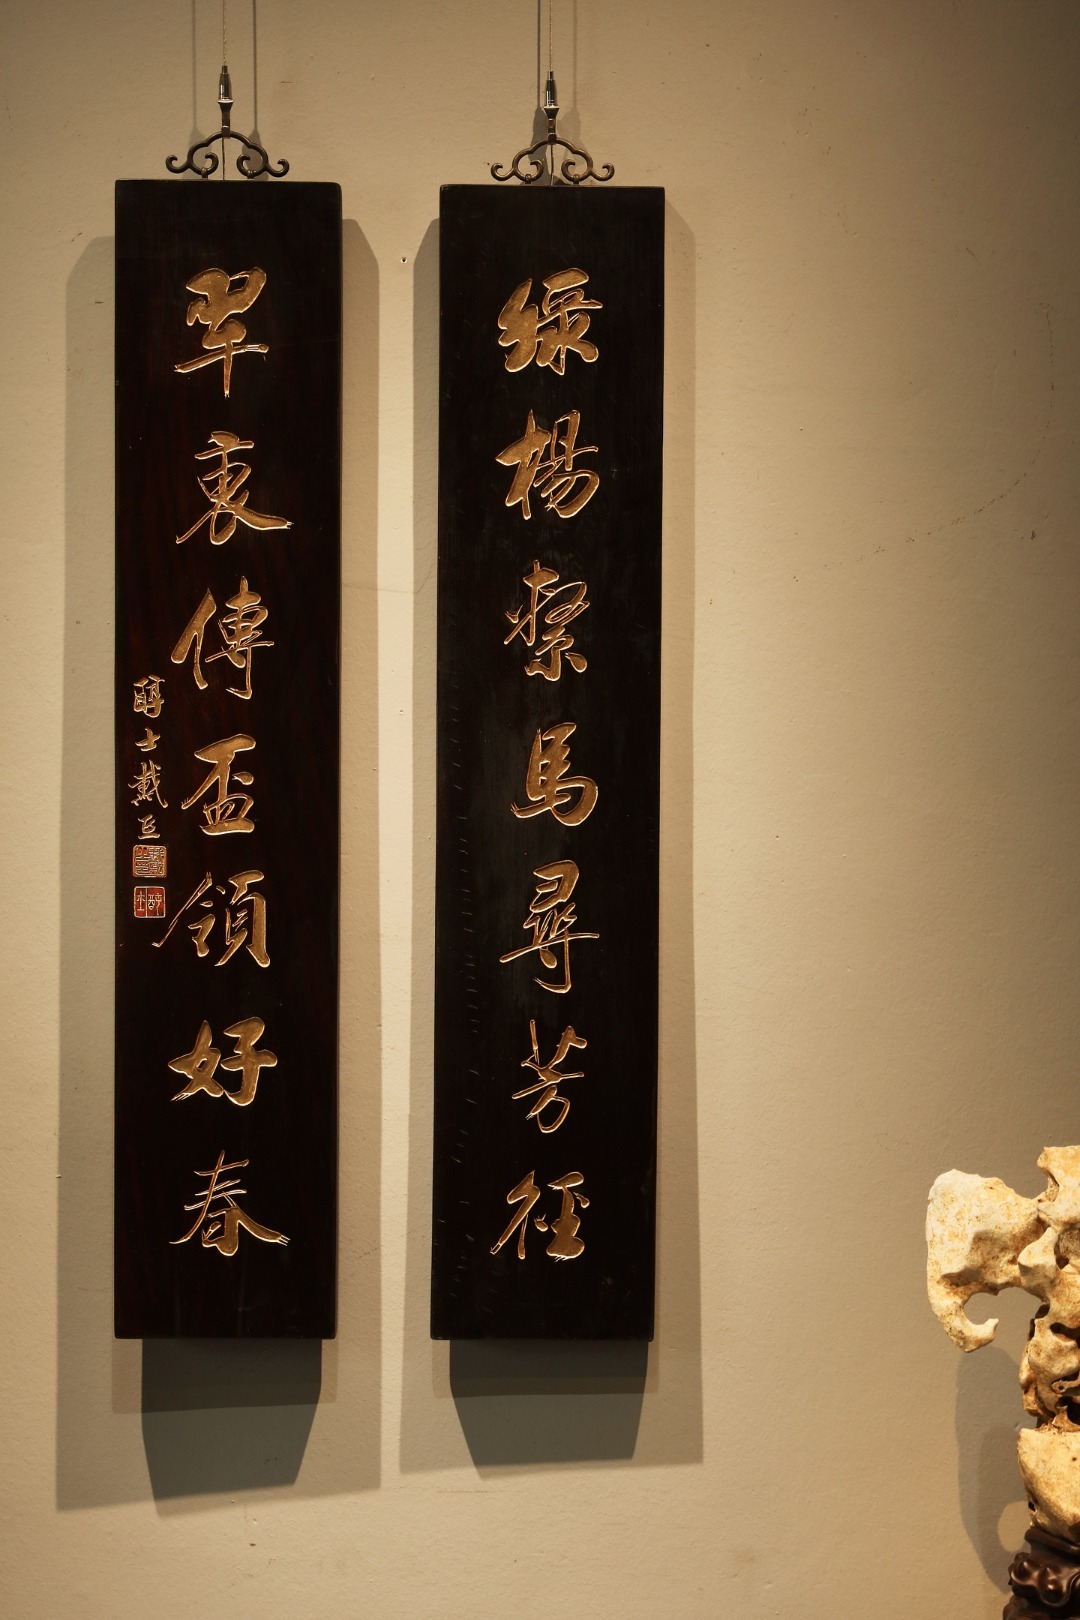 綠楊繫馬尋芳徑
翠衷傳盃領好春
醇士戴熙
醇士